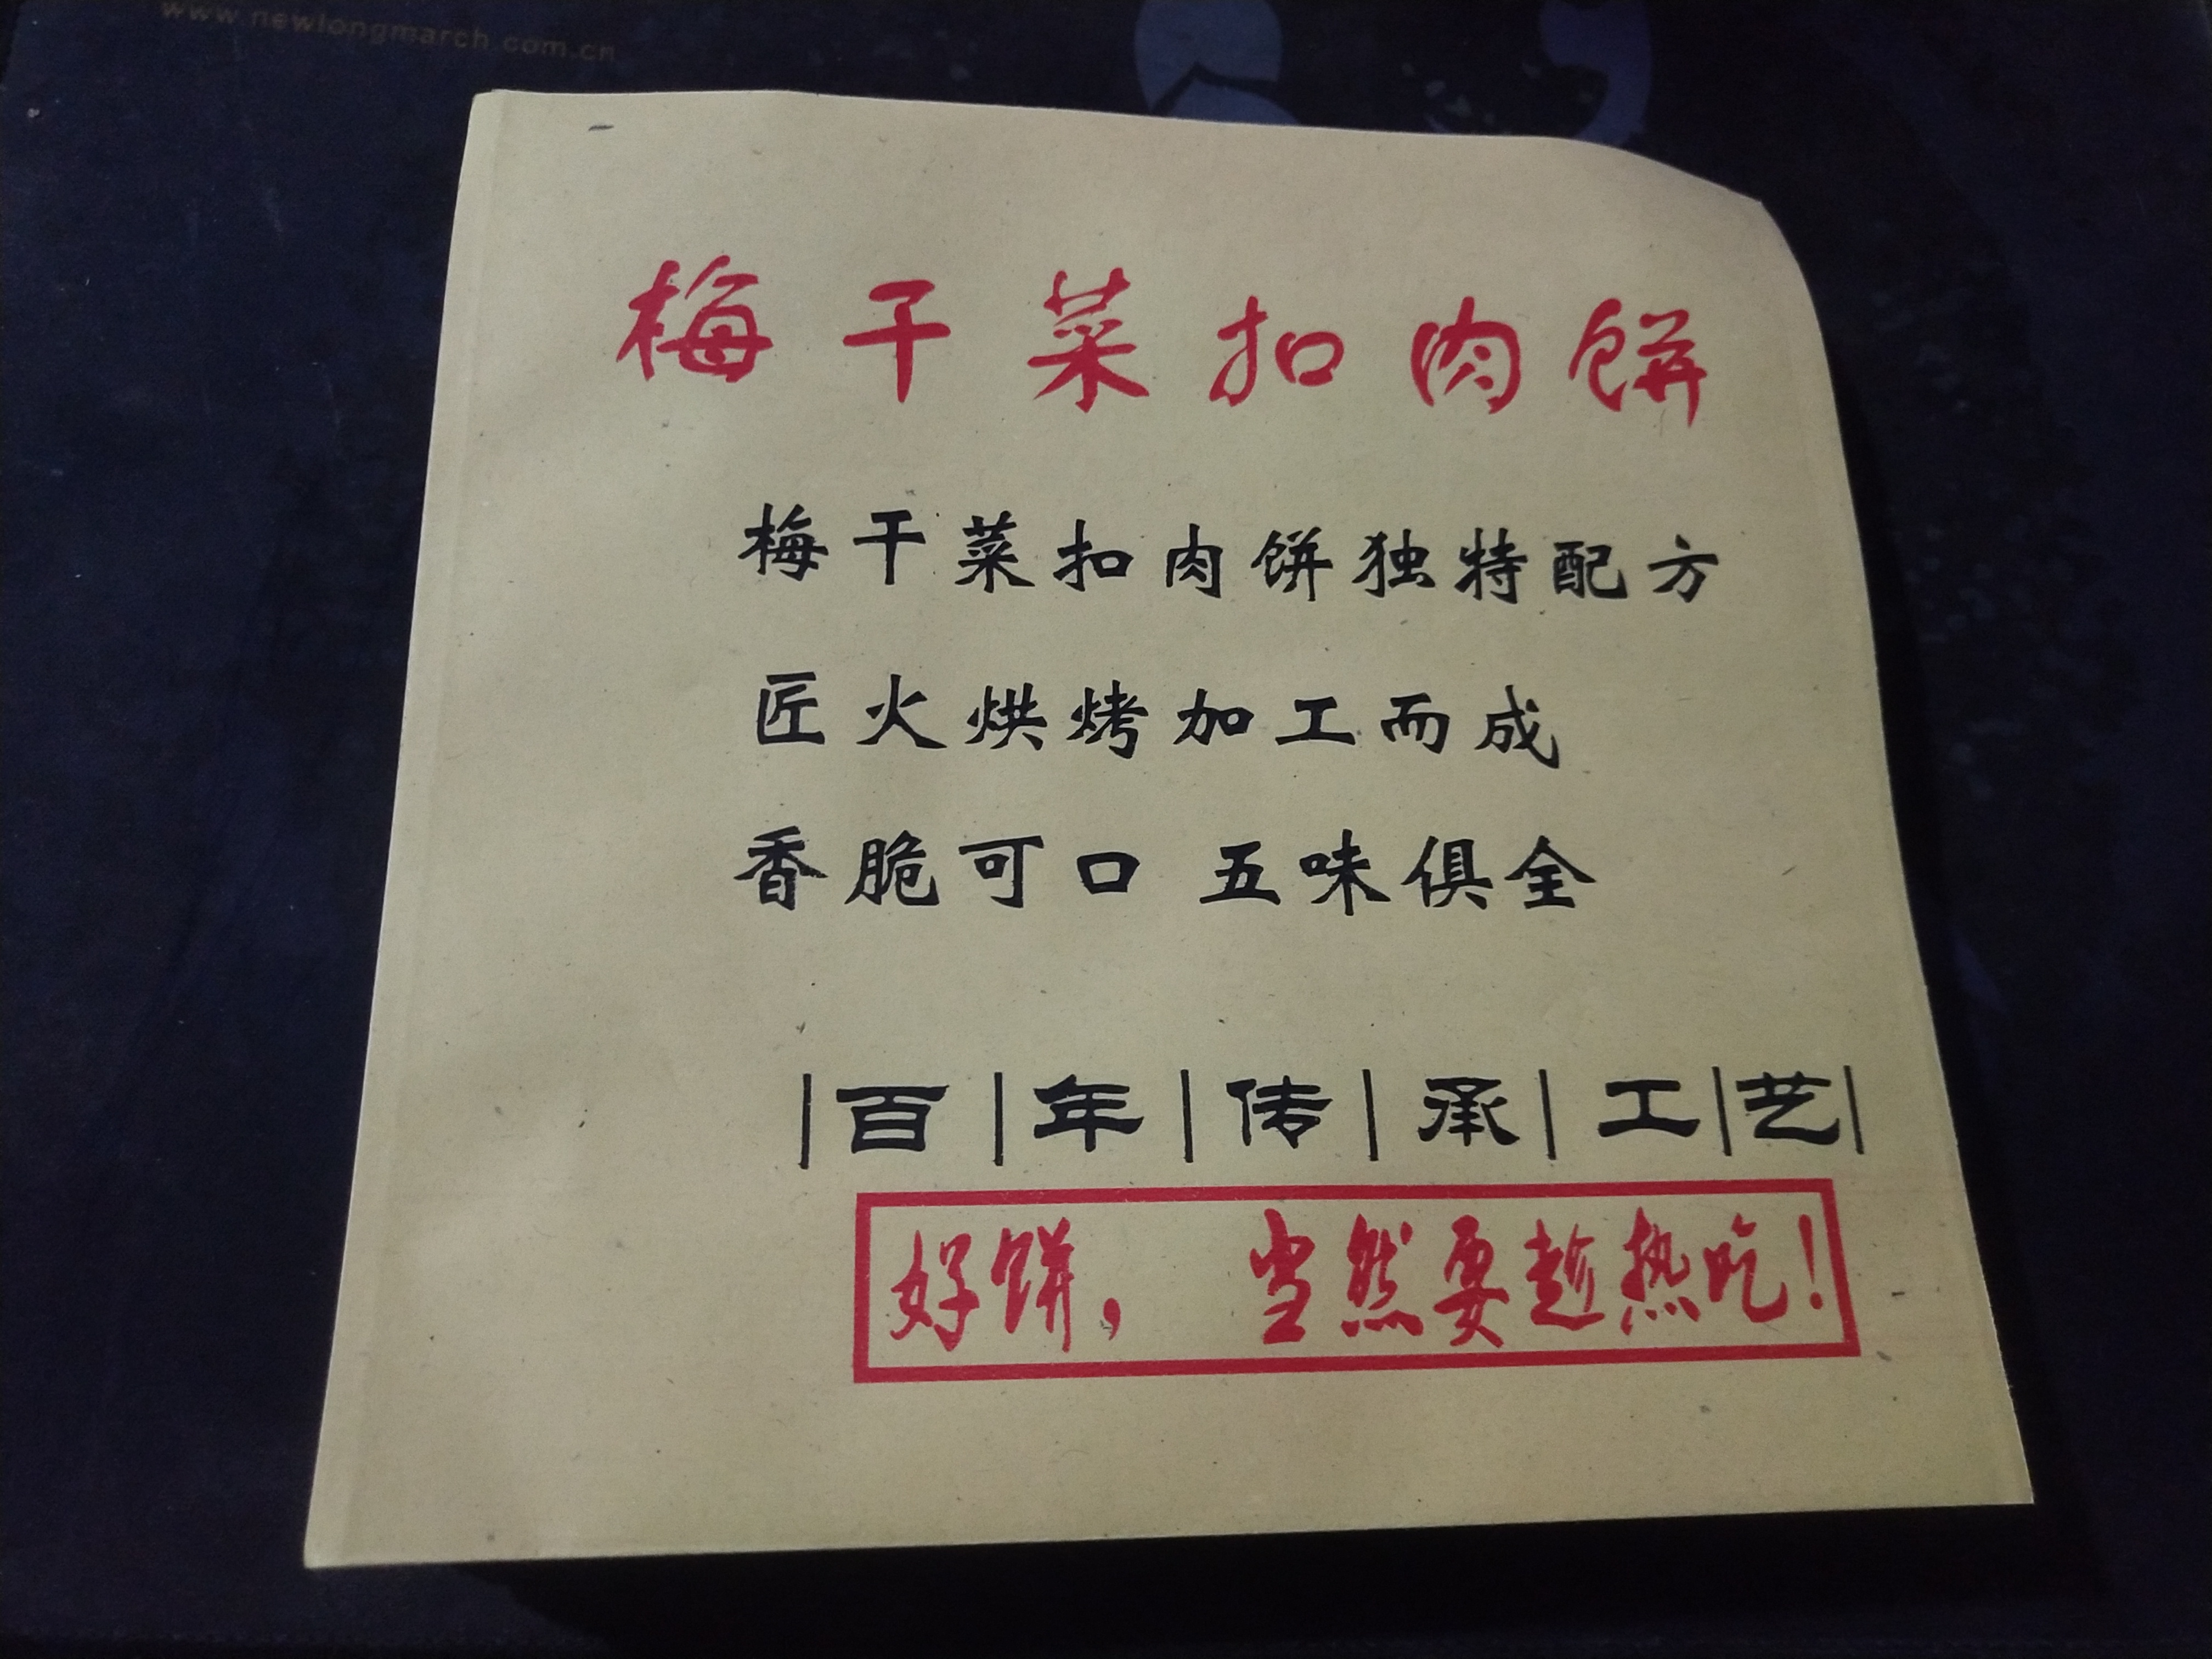 www.newlongmarch.com.cn
梅干菜扣肉饼
梅干菜扣肉饼独特配方
匠火烘烤加工而成
香脆可口 五味俱全
|百|年|传|承|工|艺|
好饼，当然要趁热吃！